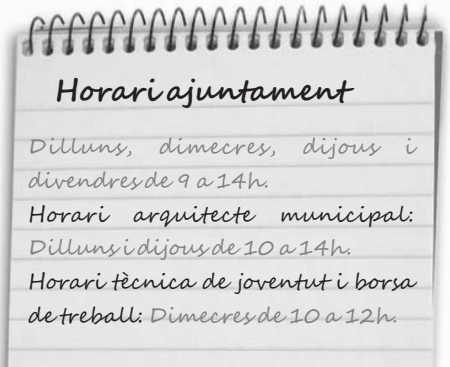 Horari ajuntament
Dilluns, dimecres, dijous i
divendres de 9 a 14h.
Horari arquitecte municipal:
Dilluns i dijous de 10 a 14h.
Horari tècnica de joventut i borsa
de treball: Dimecres de 10 a 12h.